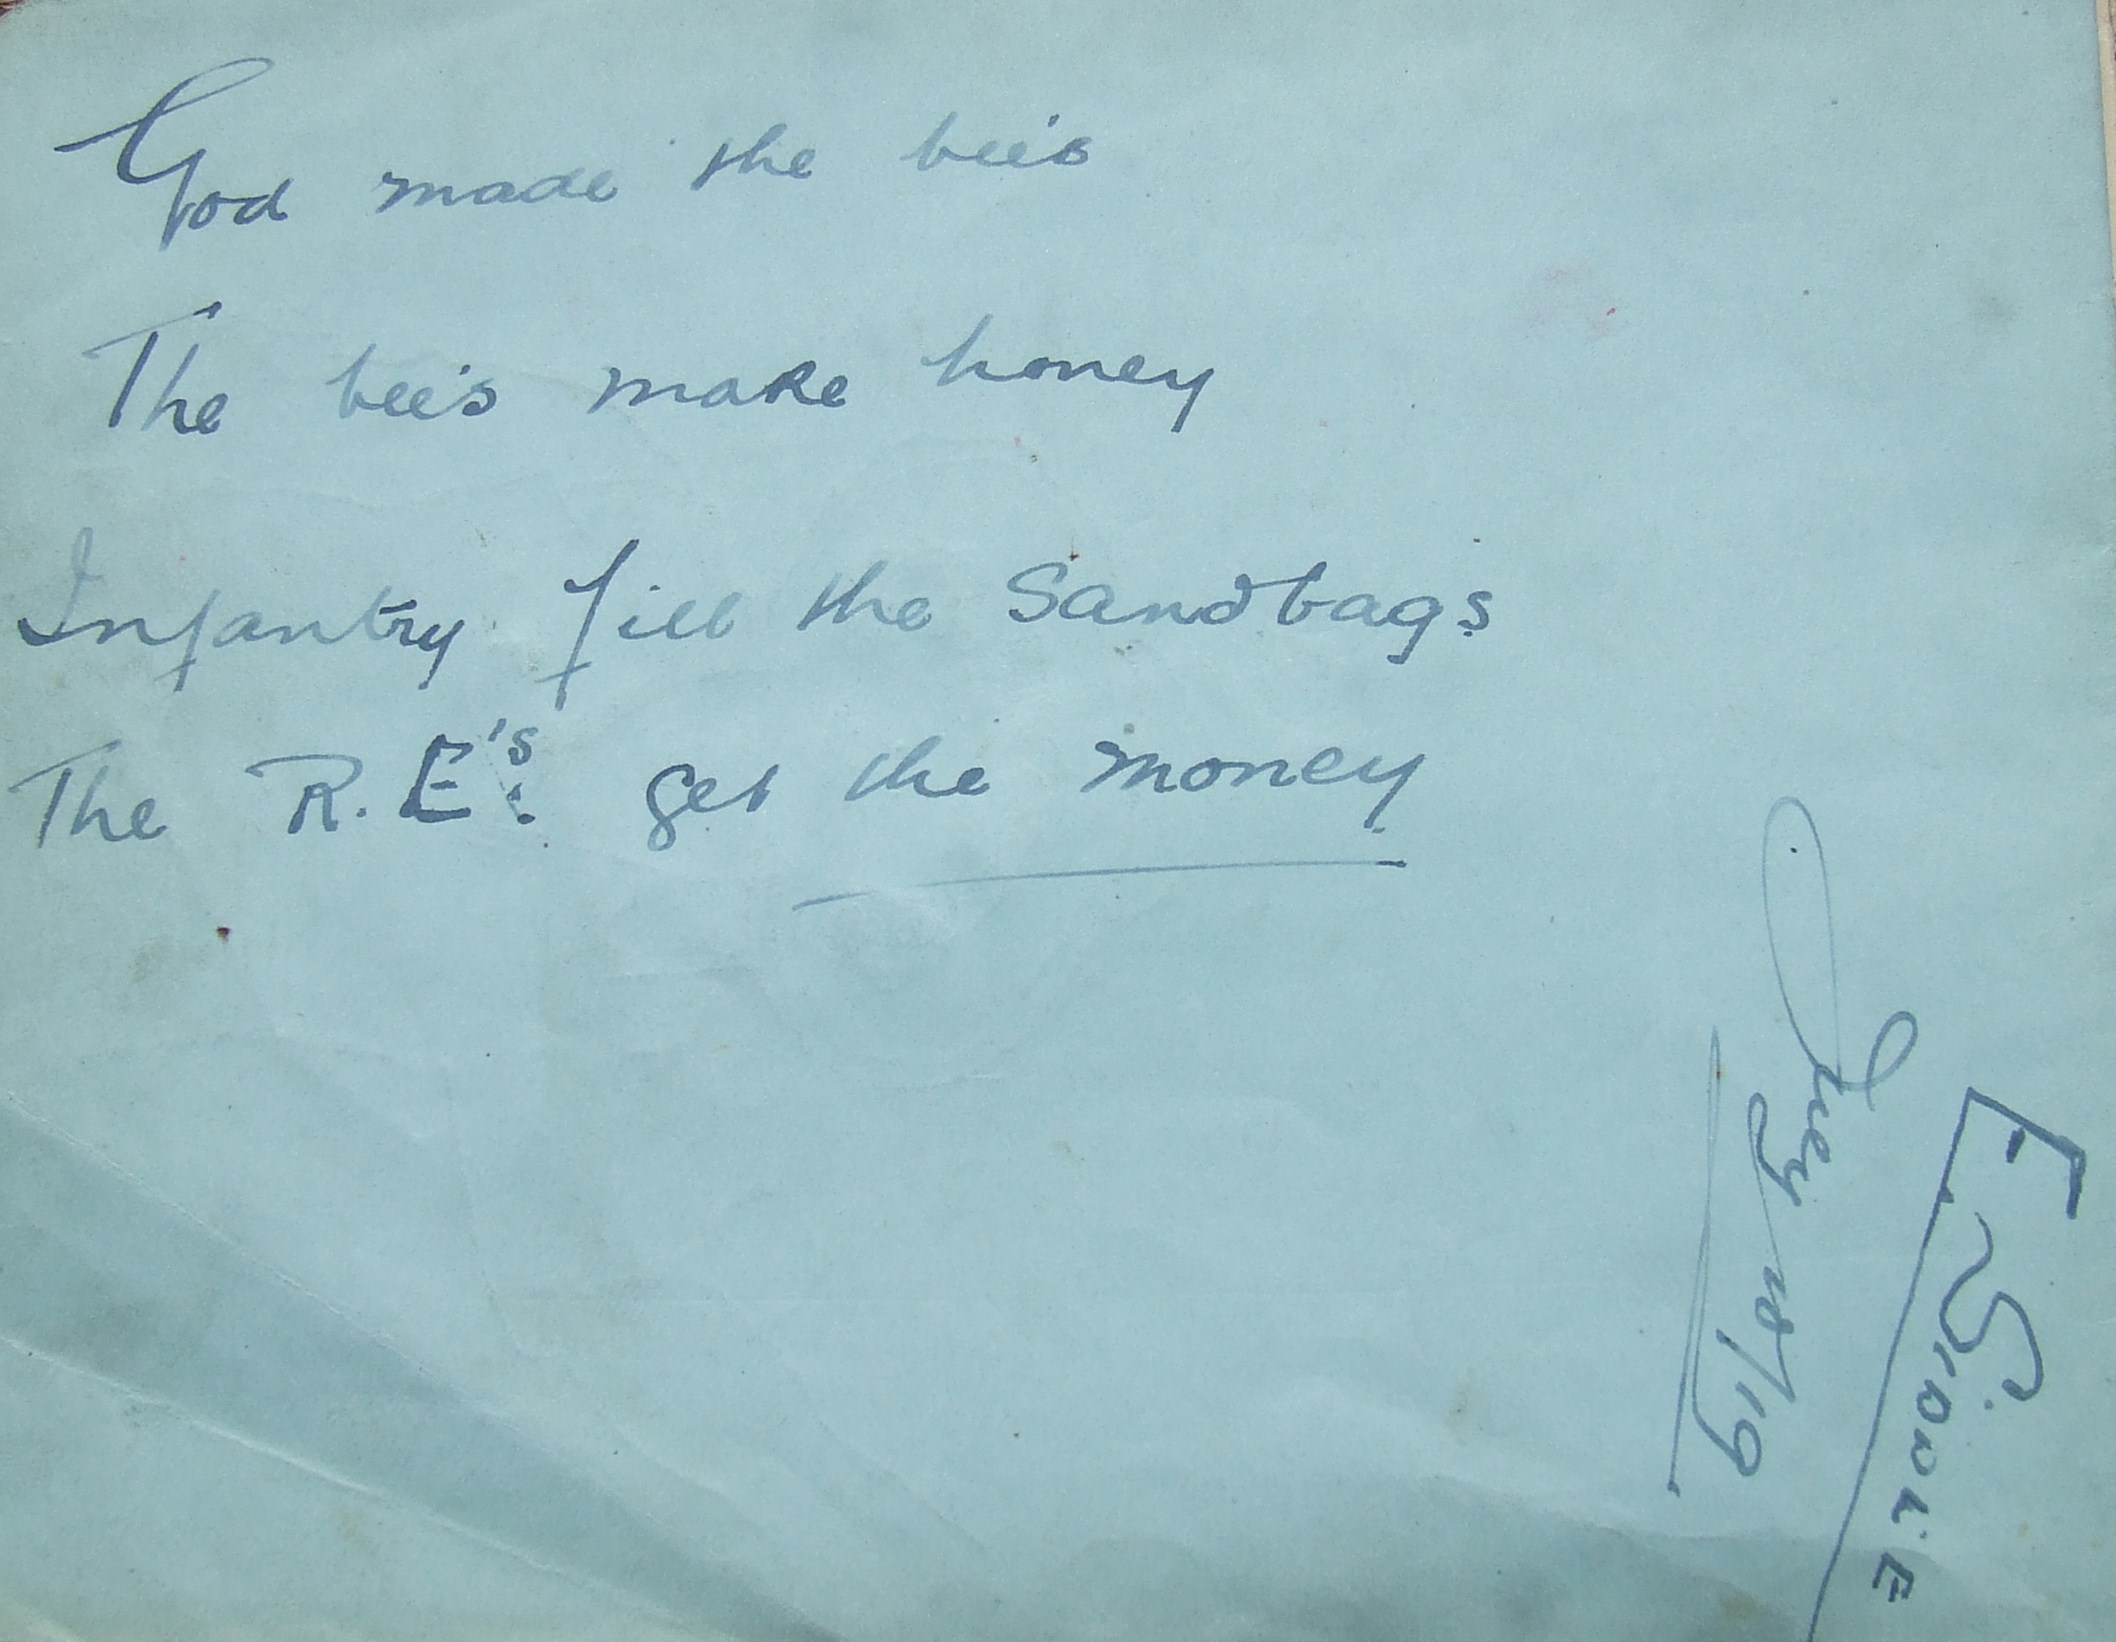 God made the bee's
The bee's make honey
Infantry fill the Sandbags
The R.E's. get the money
E. Siddle
July 18/19